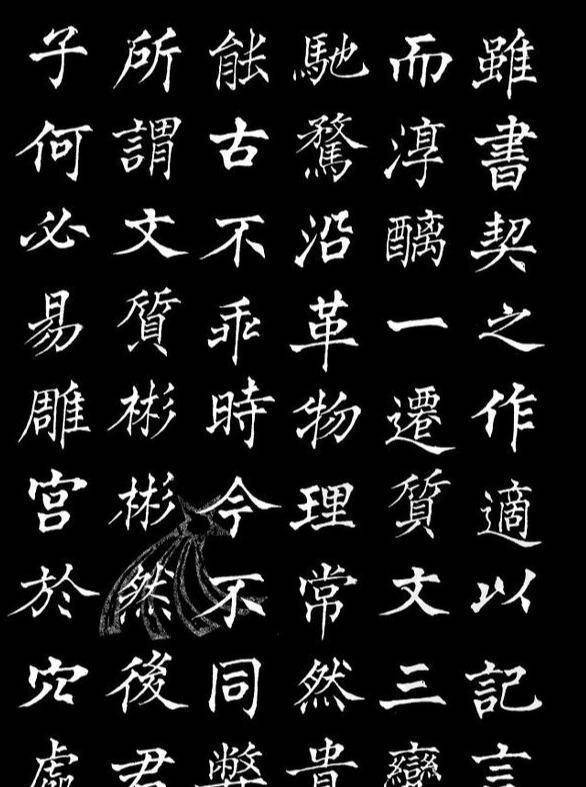 雖書契之作適以記言
而淳醨一遷質文三變
馳騖沿革物理常然貴
能古不乖時今不同弊
所謂文質彬彬然後君
子何必易雕宮於穴處